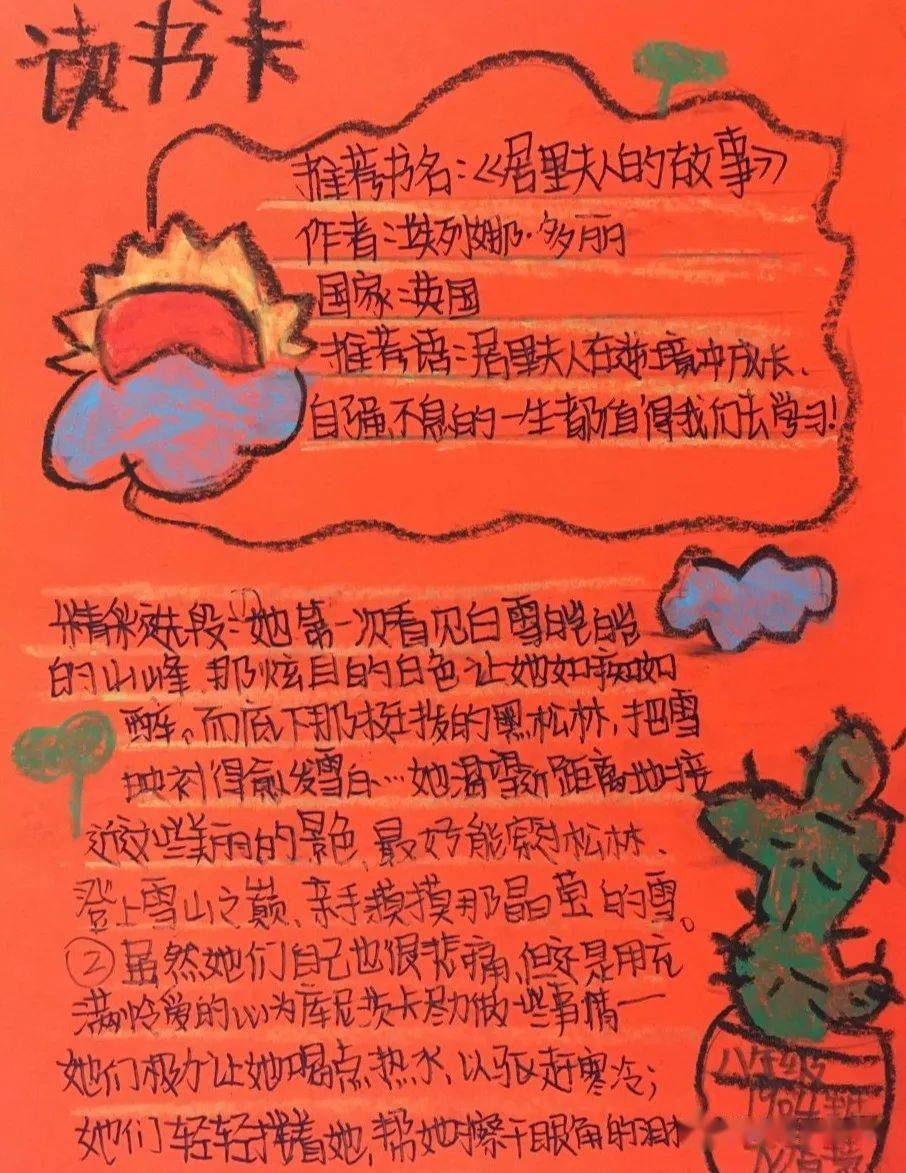 读书卡
推荐书名:《居里夫人的故事》
作者:埃列娜·多丽
国家:英国
推荐语:居里夫人在逆境中成长、
自强不息的一生都值得我们去学习!
精彩选段:①她第一次看见白雪皑皑
的山峰,那炫目的白色让她如痴如
醉。而底下那挺拔的黑松林,把雪
映衬得愈发雪白…她渴望近距离地接
近这些美丽的景色,最好能穿过松林、
登上雪山之巅、亲手摸摸那晶莹的雪。
②虽然她们自己也很悲痛,但还是用充
满怜爱的心为库尼茨卡尽力做一些事情一
她们极力让她喝点热水,以驱赶寒冷;
她们轻轻搂着她,帮她擦干眼角的泪水
八年级
1904班